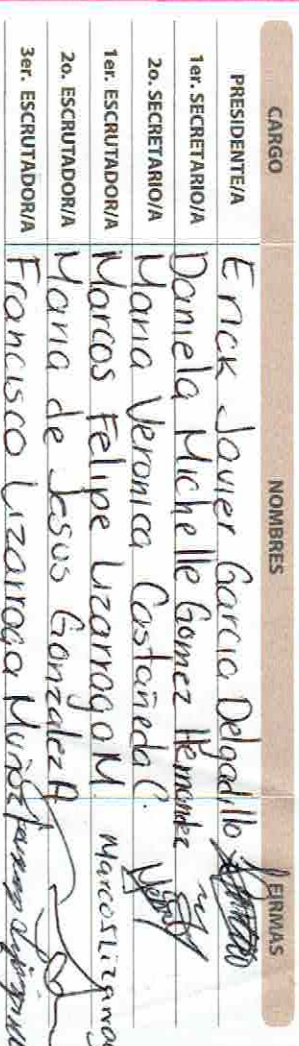 CARGO NOMBRES FIRMAS
PRESIDENTE/A Erick Javier Garcia Delgadillo
1er. SECRETARIO/A Daniela Michelle Gomez Hernandez
2o. SECRETARIO/A Maria Veronica Castañeda C.
1er. ESCRUTADOR/A Marcos Felipe Lizarraga M. Marcos Lizarraga
2o. ESCRUTADOR/A Maria de Jesus Gonzalez A
3er. ESCRUTADOR/A Francisco Lizarraga Muñoz